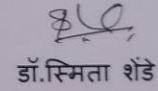 डॉ.स्मिता शेंडे